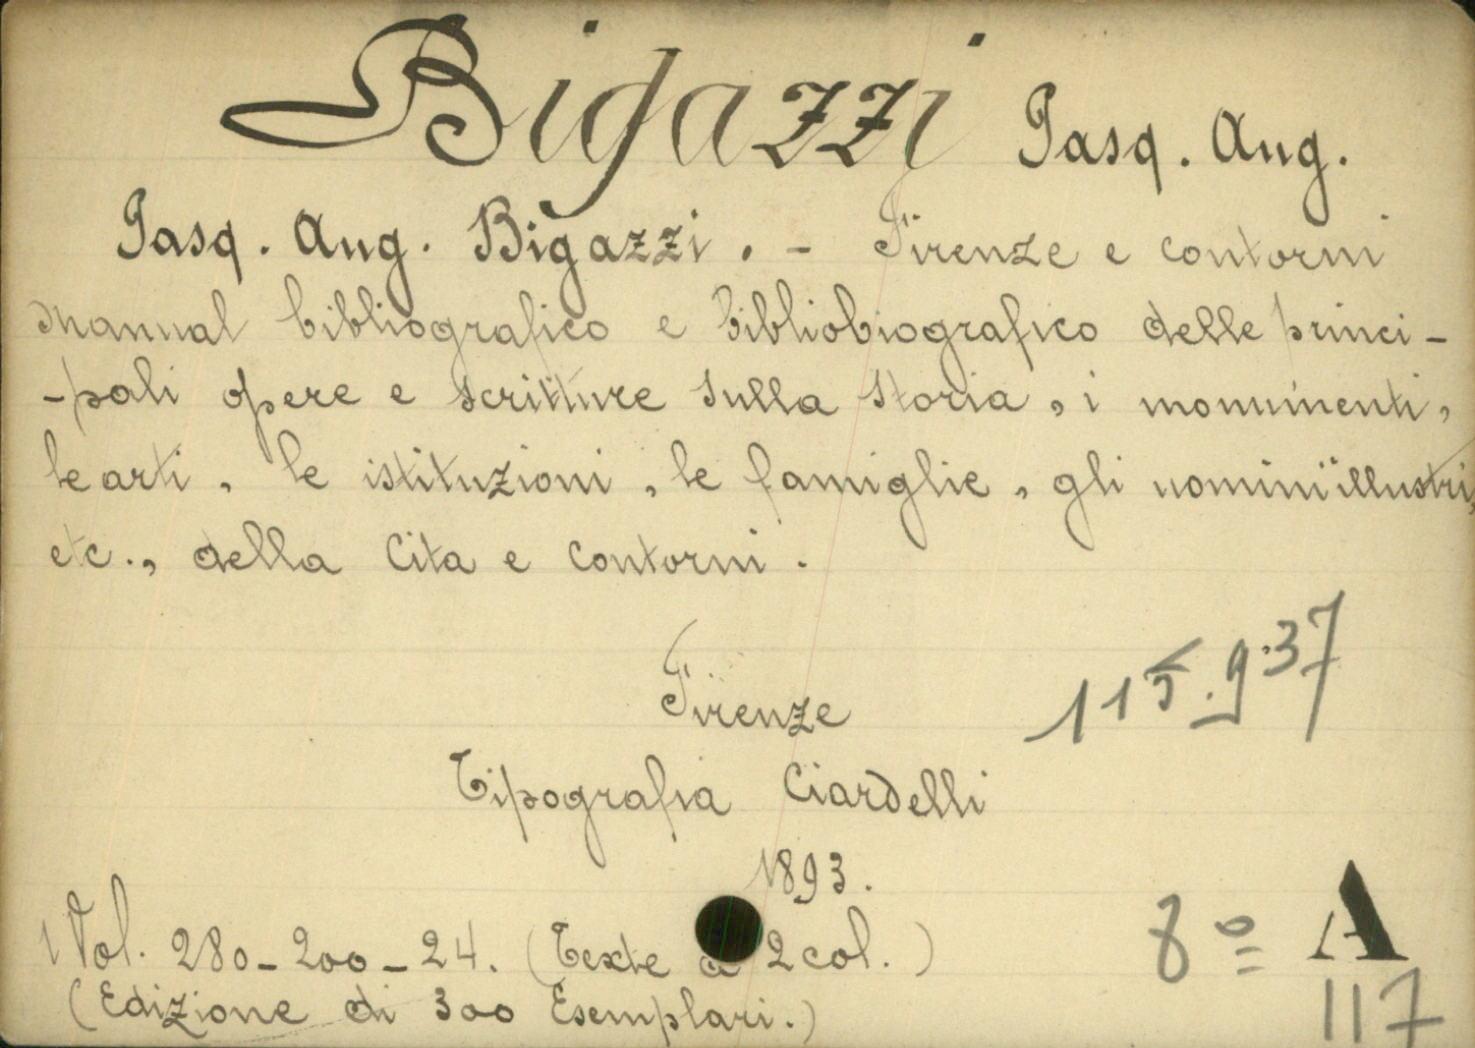 Bigazzi Pasq. Aug.
Pasq. Aug. Bigazzi. - Firenze e contorni
manual bibliografico e bibliobiografico delle princi-
-pali opere e scritture sulla storia, i monumenti,
le arti, le istituzioni, le famiglie, gli uomini illustri,
etc., della Cita e Contorni.
Firenze
115.9.37
Tipografia Ciardelli
1893.
1 Vol. 280-200-24. (Texte à 2 col.)
8º A
(Edizione di 300 Esemplari.)
117